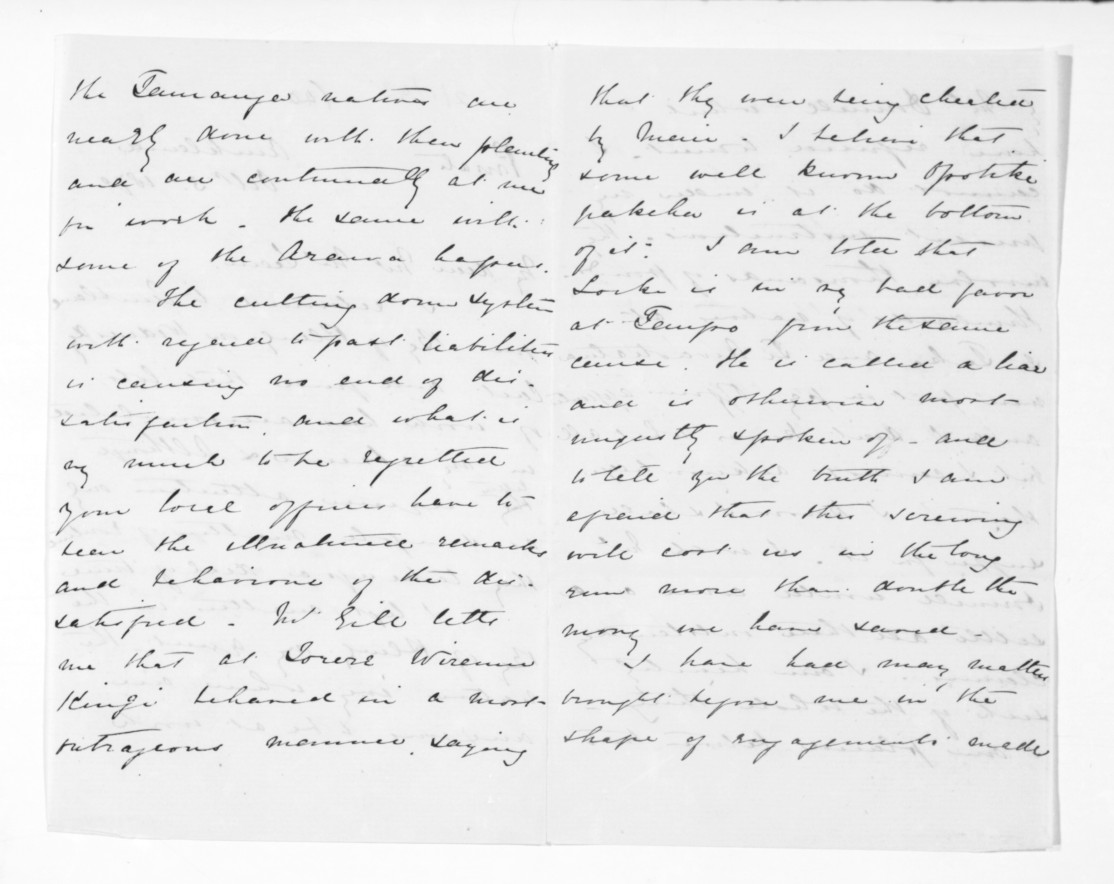 the Tauranga natives are
nearly done with their planting
and are continually at me
for work. The same with
some of the Arawa hapus.
The cutting down system
with regard to past liabilities
is causing no end of dis-
satisfaction, and what is
very much to be regretted
your local officers have to
bear the illnatured remarks
and behaviour of the dis-
satisfied. Mr Gill tells
me that at Torere Wiremu
Kingi behaved in a most
outrageous manner, saying
that they were being cheated
by Mair. I believe that
some well known Opotiki
pakeha is at the bottom
of it. I am told that
Locke is in very bad favor
at Taupo from the same
cause. He is called a liar
and is otherwise most
unjustly spoken of - and
to tell you the truth I am
afraid that this screwing
will cost us in the long
run more than double the
money we have saved.
I have had many matters
brought before me in the
shape of engagements made